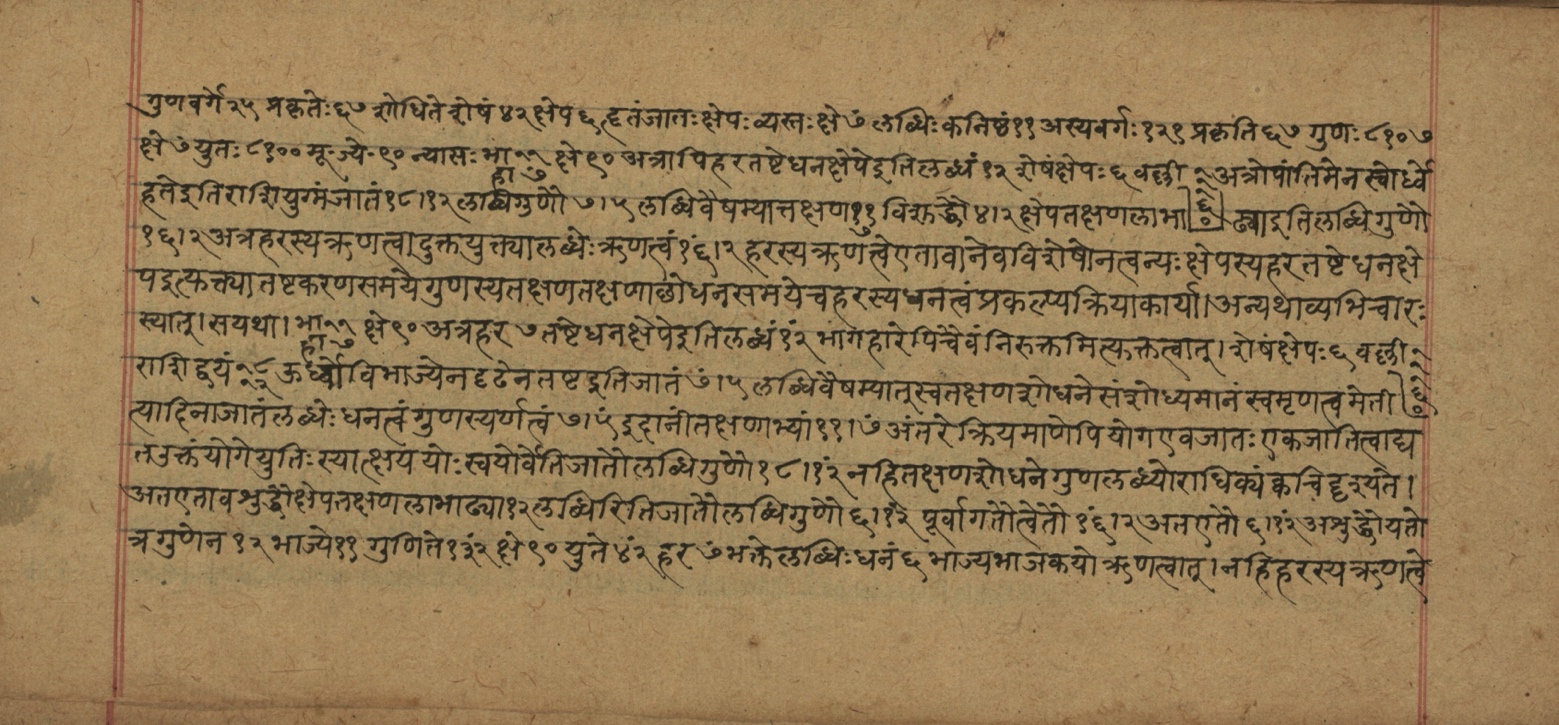 गुणवर्गे २५ प्रकृतेः ६७ शोधिते शेषं ४२ क्षेप ६ हृतं जातः क्षेपः व्यस्तः क्षे ७ं लब्धिः कनिष्ठं ११ अस्य वर्गः १२१ प्रकृति ६७ गुणः ८१०७
क्षे ७ं युतः ८१०० मू. ज्ये. ९० न्यासः भा ११ं क्षे ९० अत्रापि हरतष्टे धनक्षेपे इति लब्धं १२ शेषं क्षेपः ६ वल्ली १ अत्रोपांतिमेन स्वोर्ध्वे
हा ७
हते इति राशियुग्मं जातं १८।१२ लब्धिगुणौ ७।५ लब्धिवैषम्यात्तक्षण ११ं विशुद्धौ ४।२ क्षेपतक्षणलाभा ढ्या इति लब्धिगुणौ
७
१६।२ अत्र हरस्य ऋणत्वादुक्तयुक्त्या लब्धेः ऋणत्वं १६ं।२ हरस्य ऋणत्वे एतावानेव विशेषो नत्वन्यः क्षेपस्य हरतष्टे धनक्षे
पइत्यक्त्या तष्टकरणसमयै गुणस्य तक्षणतक्षणाछोधनसमये च हरस्य धनत्वं प्रकल्प्य क्रिया कार्या। अन्यथा व्यभिचारः
स्यात्। स यथा। भा ११ं क्षे ९० अत्र हर ७ तष्टे धनक्षेपे इति लब्धं १२ं भागहारेपि चैवं निरुक्तमित्यक्तत्वात्। शेषं क्षेपः ६ वल्ली १
हा ७ं
राशिद्वयं १८ ऊर्ध्वो विभाज्येन दृढेन तष्ट इति जातं ७ं।५ लब्धिवैषम्यात् स्वतक्षणशोधने संशोध्यमानं स्वमृणत्वमेती
त्यादिना जातं लब्धेः धनत्वं गुणस्यर्णत्वं ७।५ं इदानीं तक्षणाभ्यां ११।७ं अंतरे क्रियमाणेपि योग एव जातः एकजातित्वाद्य
त उक्तं योगे युतिः स्यात्क्षययोः स्वयोर्वेति जातौ लब्धिगुणौ १८।१२ं नहि तक्षणशोधने गुणलब्ध्योराधिक्यं क्वचिद्दृश्यते।
अत एतावशुद्धौ क्षेपतक्षणलाभाढ्या १२ लब्धिरिति जातौ लब्धिगुणौ ६।१२ं पूर्वागतौ त्वेतौ १६ं।२ अत एतौ ६।१२ं अशुद्धौ यतो
त्र गुणेन १२ भाज्ये ११ गुणिते १३२ं क्षे ९० युते ४२ं हर ७ं भक्ते लब्धिः धनं ६ भाज्यभाजकयो ऋणत्वात्। नहि हरस्य ऋणत्वे